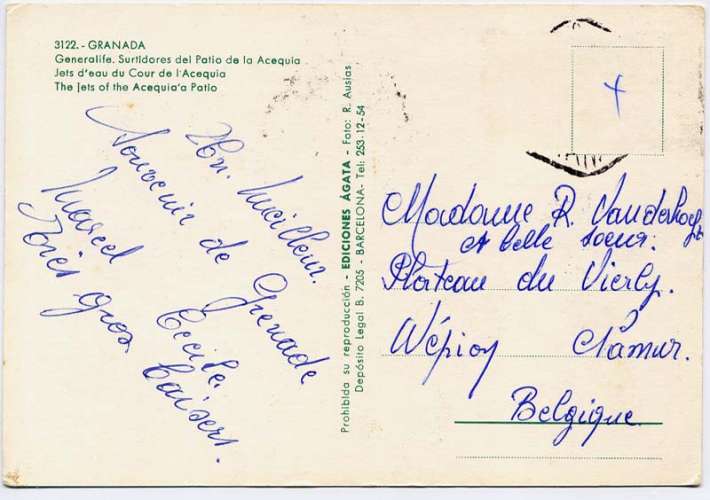 3122.- GRANADA
Generalife. Surtidores del Patio de la Acequia
Jets d'eau du Cour de l'Acequia
The Jets of the Acequia'a Patio
Un meilleur
Souvenir de Grenade
Marcel Cécile.
Très gros baisers.
Prohibida su reproducción - EDICIONES ÁGATA - Foto: R. Ausias
Depósito Legal B. 7205 - BARCELONA- Tel: 253-12-54
Madame R.
et belle soeur.
Plateau du Vierly.
Wépion Namur.
Belgique.